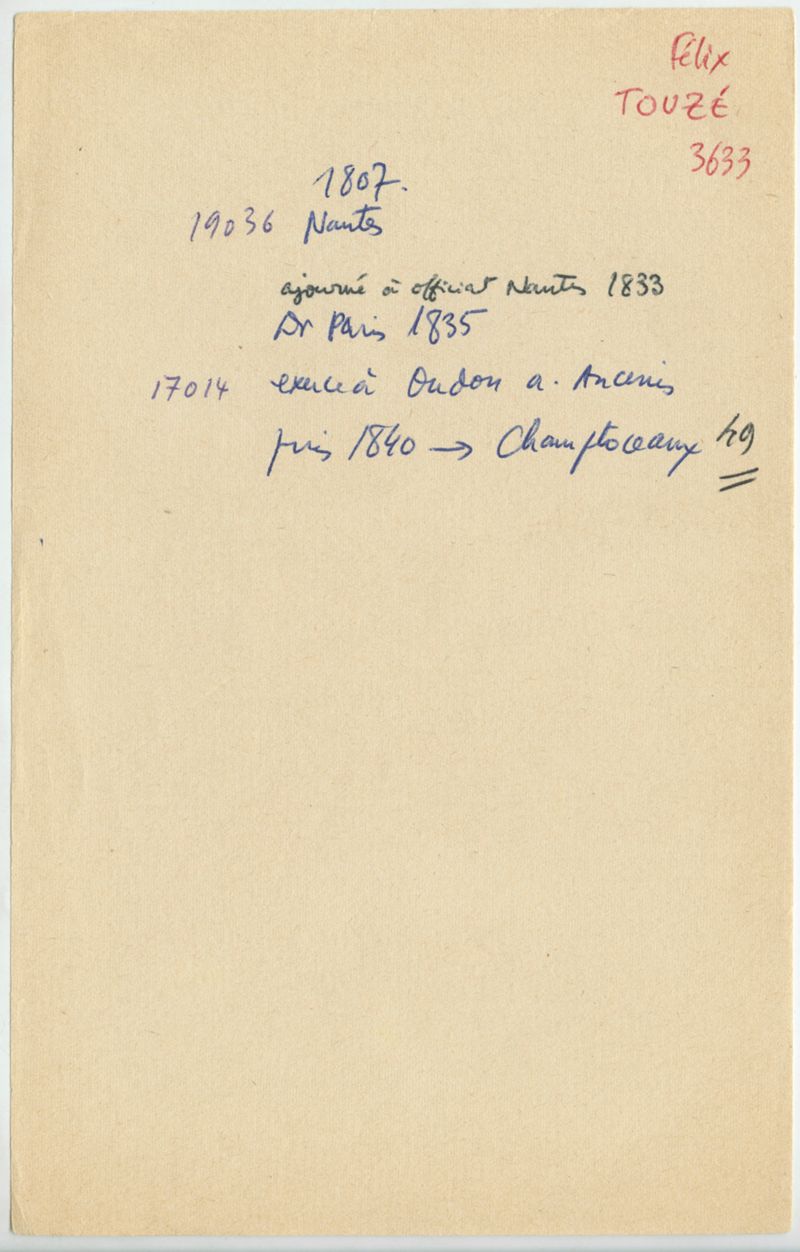 Félix
TOUZÉ
3633
1807.
19036 Nantes
ajourné à officiat Nantes 1833
Dr Paris 1835
17014 exerce à Oudon a. Ancenis
puis 1840 → Champtoceaux 49